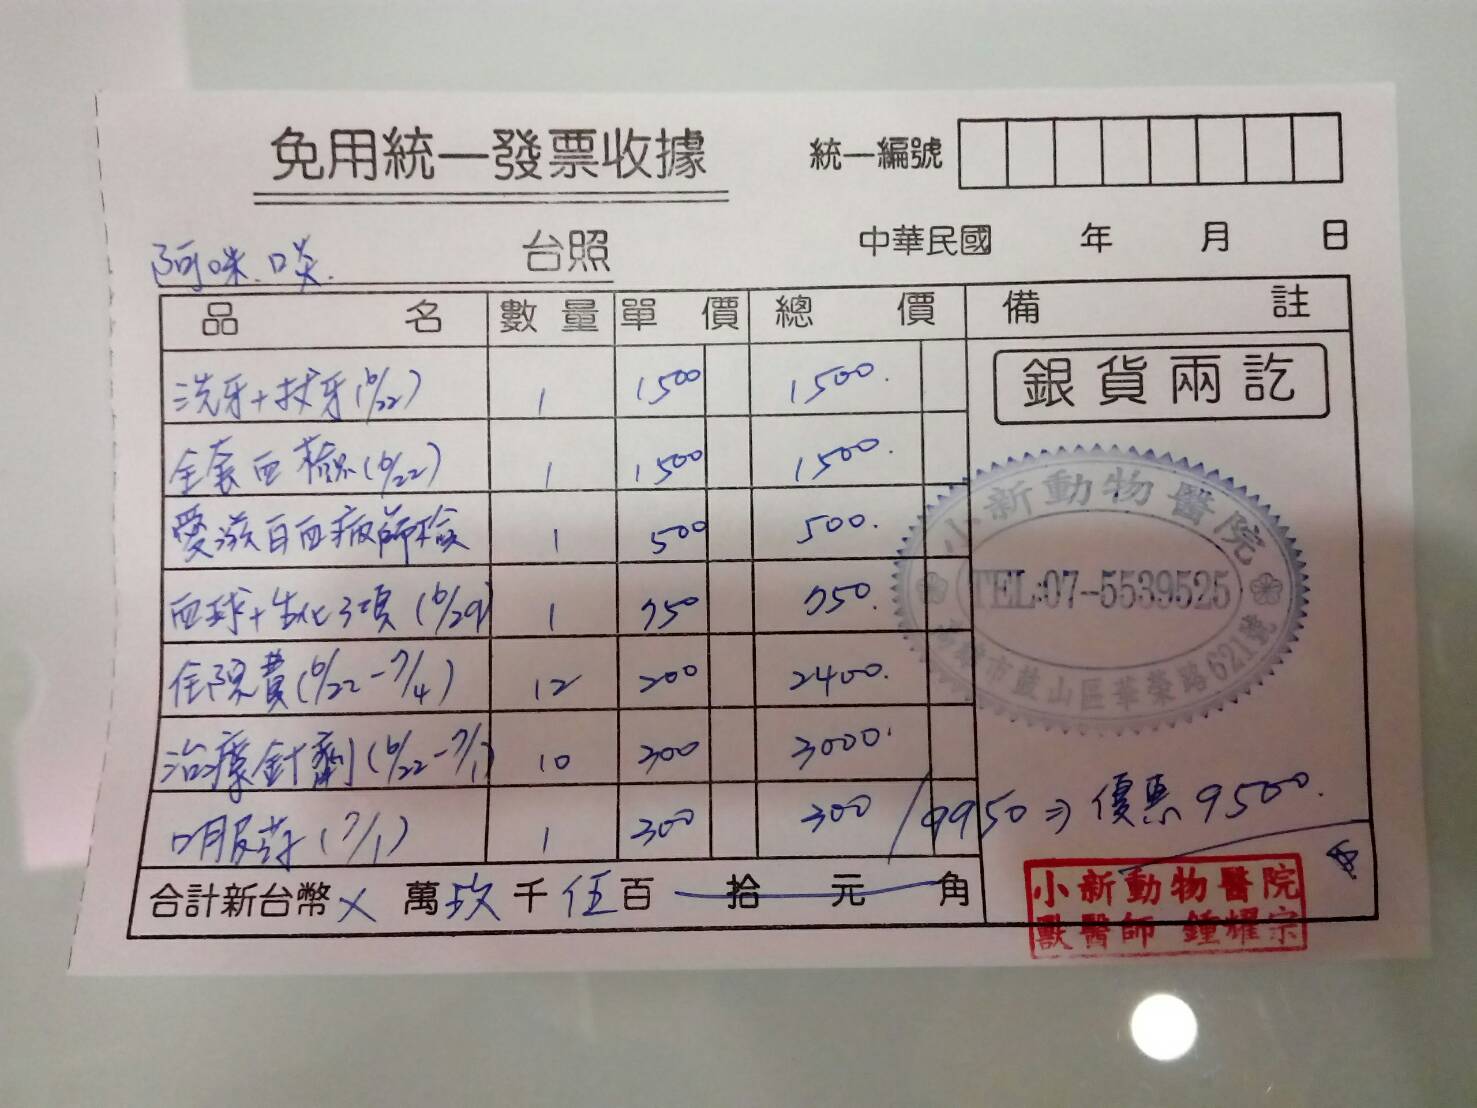 免用統一發票收據
統一編號
阿咪 台照
中華民國 年 月 日
品名 數量 單價 總價 備註
洗牙+拔牙(6/22) 1 1500 1500.
全套血檢(6/22) 1 1500 1500.
愛滋白血病篩檢 1 500 500.
血球+生化3項(6/29) 1 750 750.
住院費(6/22-7/4) 12 200 2400.
治療針劑(6/22-7/1) 10 300 3000.
口服葯(7/1) 1 300 300 / 9950 ⇒ 優惠9500.
合計新台幣 X 萬 玖 千 伍 百 拾 元 角
銀貨兩訖
小新動物醫院
TEL:07-5539525
高雄市鼓山區華榮路621號
小新動物醫院
獸醫師 鍾耀宗